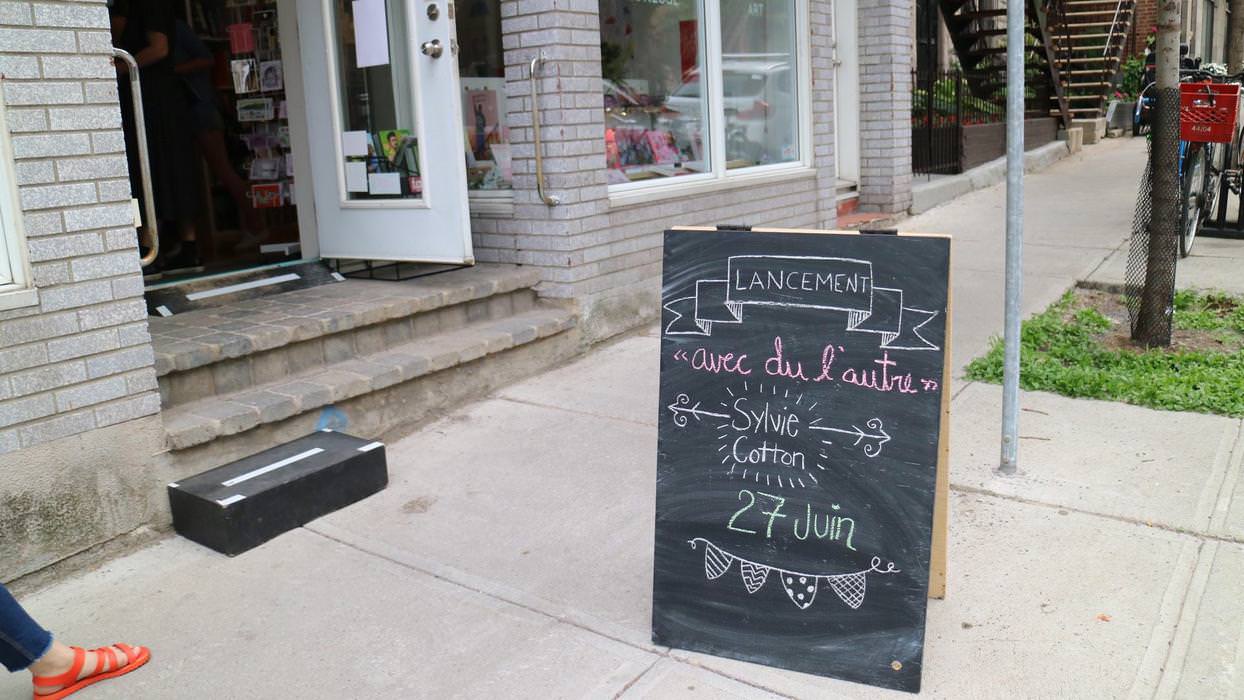 ART
LANCEMENT
«avec du l'autre»
Sylvie
Cotton
27 Juin